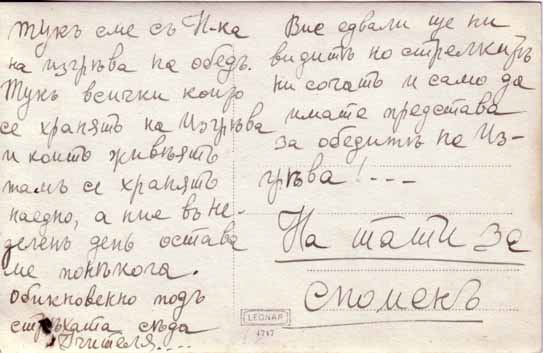 Тукъ сме съ П-ка
на изгрѣва на обедъ.
Тукъ всички които
се хранятъ на Изгрѣва
и които живѣятъ
тамъ се хранятъ
наедно, а ние въ не-
деленъ день остава
ме понѣкога.
Обикновенно подъ
стрѣхата сѣда
Учителя....
Вие едвали ще ни
видитѣ но стрелкитѣ
ни сочатъ и само да
имате представа
за обедитѣ на Из-
грѣва! ---
На тати за
споменъ
LEONAR
4747